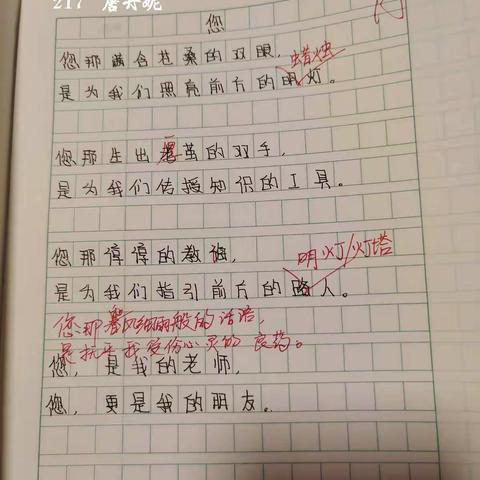 217 詹丹妮
您
您那满含沧桑的双眼,
蜡烛
是为我们照亮前方的明灯。
您那生出老茧的双手,
是为我们传授知识的工具。
您那谆谆的教诲,
明灯/灯塔
是为我们指引前方的路人。
您那和风细雨般的话语,
是抚平我受伤心灵的良药。
您, 是我的老师,
您, 更是我的朋友。